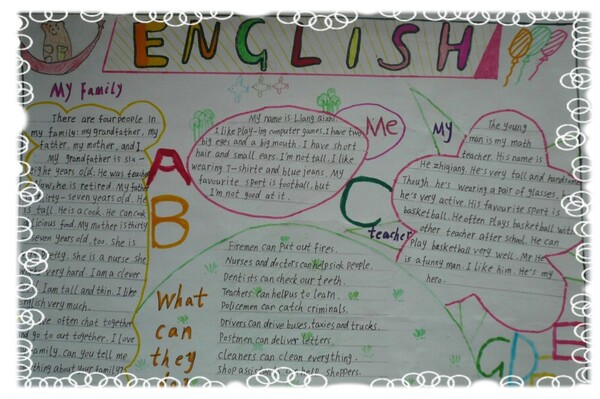 ENGLISH
My Family
There are four people in
my family: my grandfather, my
father, my mother, and I.
My grandfather is six-
eight years old. He was teacher
now, he is retired. My father
thirty-seven years old. He
is tall. He is a cook. He can cook
licious food. My mother is thirty
seven years old, too. She is
pretty. She is a nurse she
very hard. I am a clever
I am tall and thin. I like
nglish very much.
We often chat together
and go to out together. I love
family. can you tell me
thing about your family?
A
B
My name is Liang
I like play-ing computer games. I have two
big eyes and a big mouth. I have short
hair and small ears. I'm not tall. I like
wearing T-shirts and blue jeans. My
favourite sport is football, but
I'm not good at it.
Me
C
My
teacher
The young
man is my math
teacher. His name is
He zhiqiang. He's very tall and handsome.
Though he's wearing a pair of glasses,
he's very active. His favourite sport is
basketball. He often Plays basketball with
other teacher after school. He can
Play basketball very well. Mr He
is a funny man. I like him. He's my
hero.
What
can
they
do?
Firemen can Put out fires.
Nurses and doctors can help sick people.
Dentists can check our teeth.
Teachers can help us to learn.
Policemen can catch criminals.
Drivers can drive buses, taxies and trucks.
Postmen can deliver letters.
cleaners can clean everything.
Shop help shoppers.
G
D
E